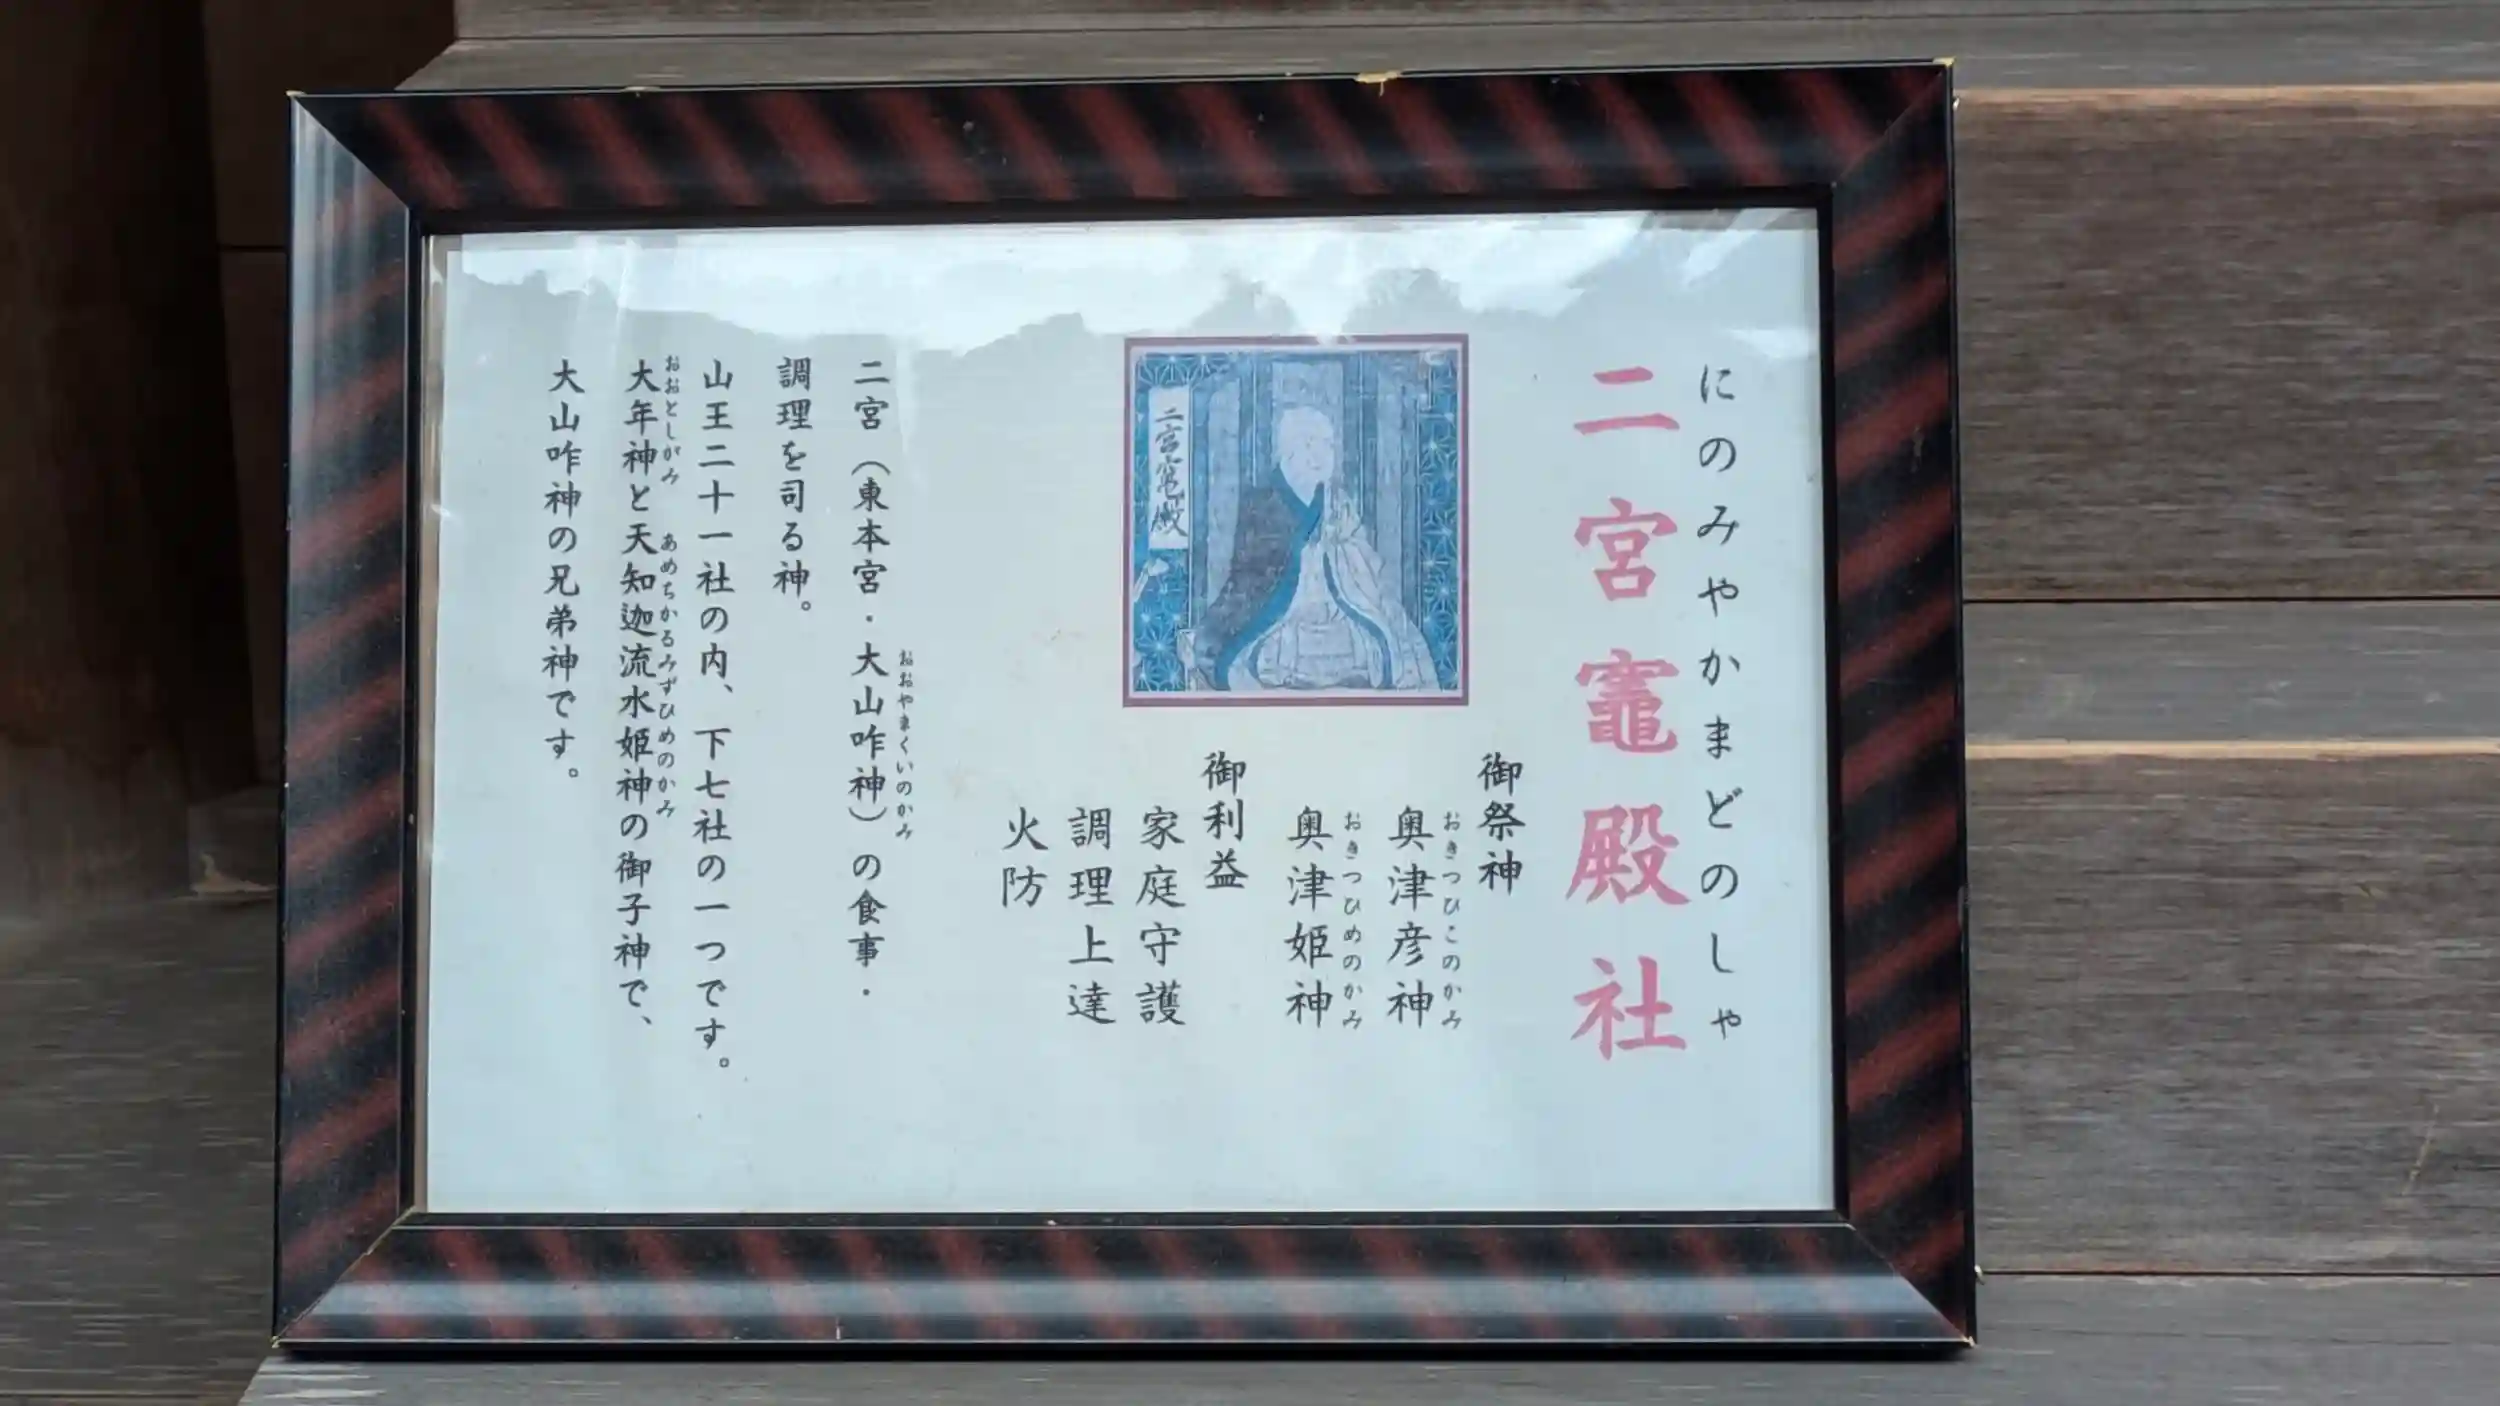 にのみやかまどのしゃ
二宮竈殿社
御祭神
おきつひこのかみ
奥津彦神
おきつひめのかみ
奥津姫神
御利益
家庭守護
調理上達
火防
二宮竈殿
おおやまくいのかみ
二宮（東本宮・大山咋神）の食事・
調理を司る神。
山王二十一社の内、下七社の一つです。
おおとしがみ あめちかるみずひめのかみ
大年神と天知迦流水姫神の御子神で、
大山咋神の兄弟神です。